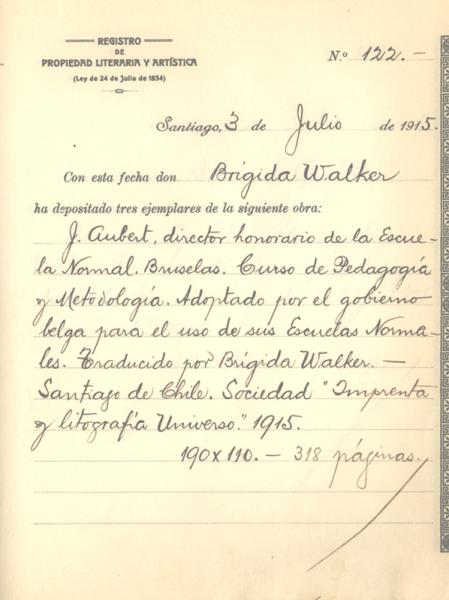 REGISTRO
DE
PROPIEDAD LITERARIA Y ARTÍSTICA
(Ley de 24 de Julio de 1834)
N.º 122.-
Santiago, 3 de Julio de 1915.
Con esta fecha don Brígida Walker
ha depositado tres ejemplares de la siguiente obra:
J. Aubert, director honorario de la Escue-
la Normal. Bruselas. Curso de Pedagogía
y Metodología. Adoptado por el gobierno
belga para el uso de sus Escuelas Norma-
les. Traducido por Brígida Walker. —
Santiago de Chile. Sociedad "Imprenta
y litografía Universo". 1915.
190 x 110. — 318 páginas.